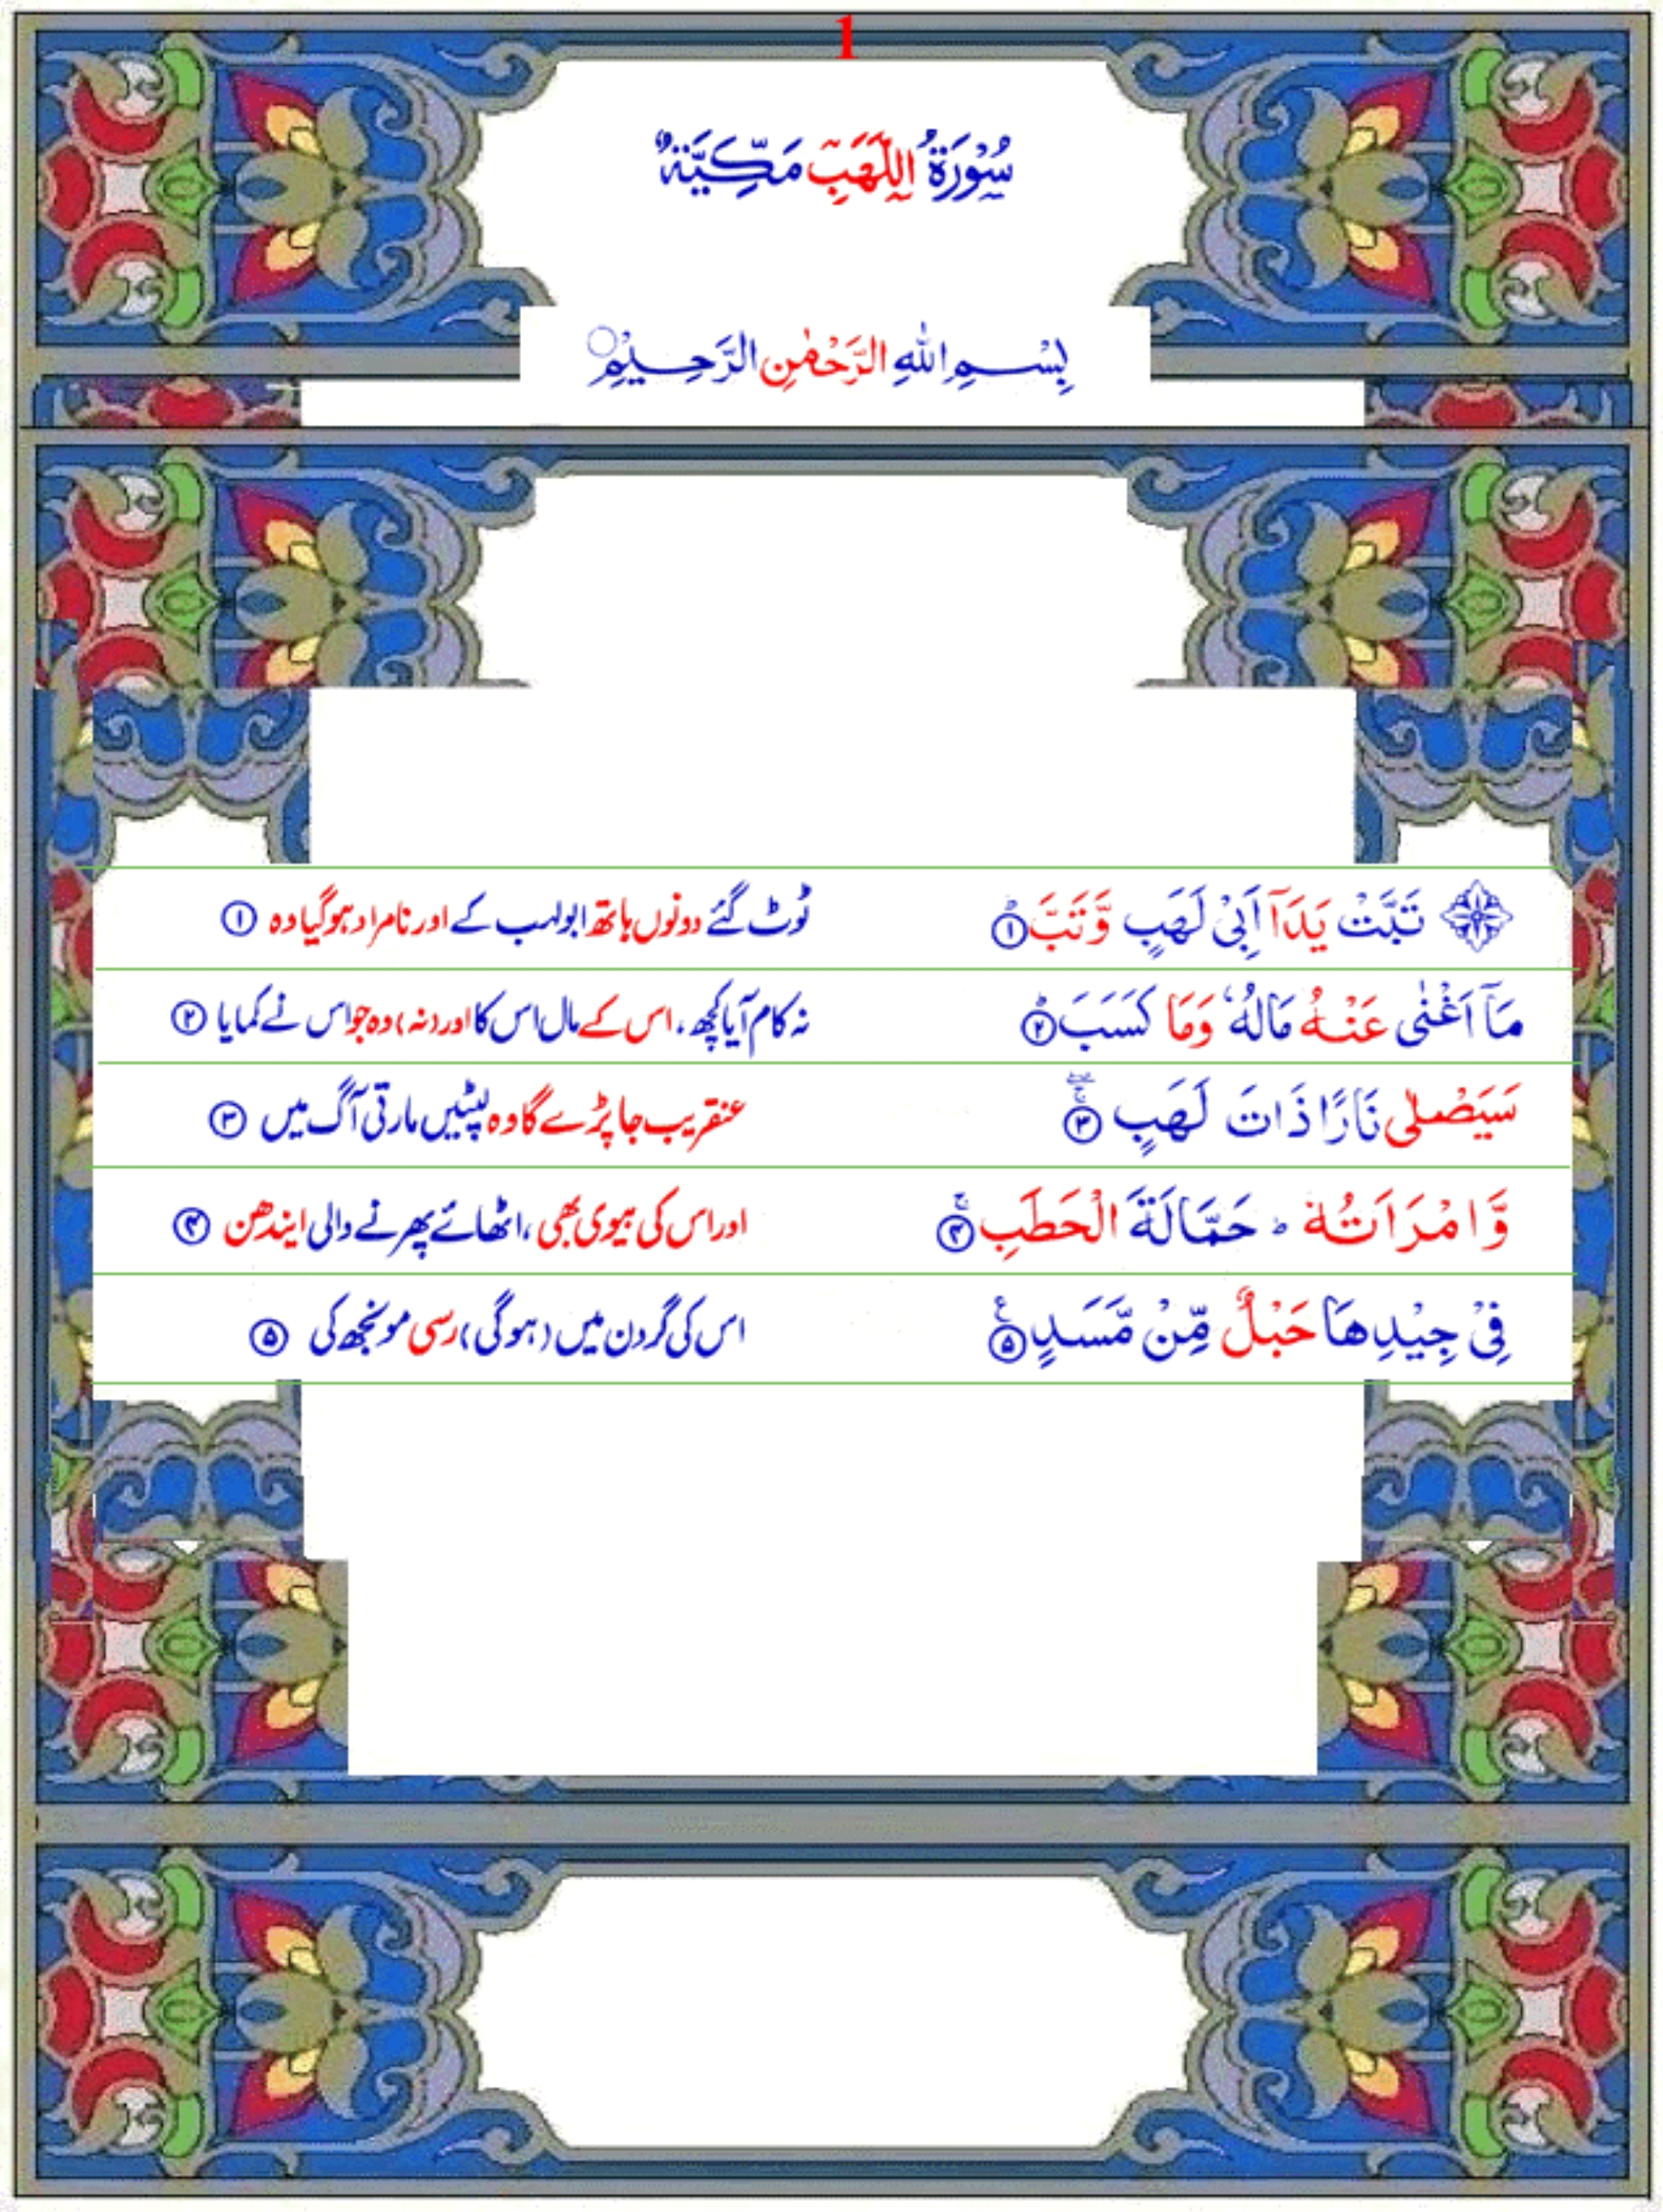 1
سُوْرَةُ اللَّهَبِ مَكِّيَّةٌ
بِسْمِ اللهِ الرَّحْمٰنِ الرَّحِيْمِ
تَبَّتْ يَدَآ اَبِىْ لَهَبٍ وَّتَبَّ ؕ ۱ ٹوٹ گئے دونوں ہاتھ ابولہب کے اور نامراد ہوگیا وہ ۱
مَآ اَغْنٰى عَنْهُ مَالُهٗ وَمَا كَسَبَ ؕ ۲ نہ کام آیا کچھ، اس کے مال اس کا اور (نہ) وہ جو اس نے کمایا ۲
سَيَصْلٰى نَارًا ذَاتَ لَهَبٍ ۚۖ ۳ عنقریب جا پڑے گا وہ لپٹیں مارتی آگ میں ۳
وَّامْرَاَتُهٗ ؕ حَمَّالَةَ الْحَطَبِ ۚ ۴ اور اس کی بیوی بھی، اٹھائے پھرنے والی ایندھن ۴
فِىْ جِيْدِهَا حَبْلٌ مِّنْ مَّسَدٍ ۵ اس کی گردن میں (ہوگی) رسی مونجھ کی ۵